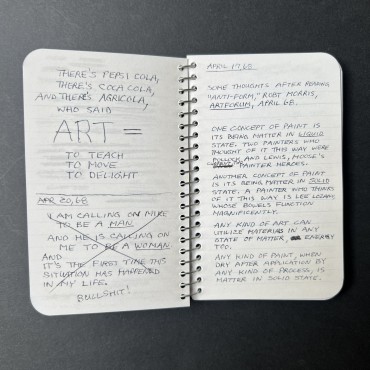 THERE'S PEPSI COLA,
THERE'S COCA COLA,
AND THERE'S AGRICOLA,
WHO SAID
ART =
TO TEACH
TO MOVE
TO DELIGHT
APR 20, 68
I AM CALLING ON MIKE
TO BE A MAN
AND HE IS CALLING ON
ME TO BE A WOMAN
AND
IT'S THE FIRST TIME THIS
SITUATION HAS HAPPENED
IN MY LIFE.
BULLSHIT!
APRIL 17, 68
SOME THOUGHTS AFTER READING
"ANTI-FORM," ROBT MORRIS,
ARTFORUM, APRIL 68.
ONE CONCEPT OF PAINT IS
ITS BEING MATTER IN LIQUID
STATE. TWO PAINTERS WHO
THOUGHT OF IT THIS WAY WERE
POLLOCK AND LEWIS, MOOSE'S
PAINTER HEROES.
ANOTHER CONCEPT OF PAINT
IS ITS BEING MATTER IN SOLID
STATE. A PAINTER WHO THINKS
OF IT THIS WAY IS LEE LOZANO,
WHOSE BOWELS FUNCTION
MAGNIFICENTLY.
ANY KIND OF ART CAN
UTILIZE MATERIALS IN ANY
STATE OF MATTER, ENERGY
TOO.
ANY KIND OF PAINT, WHEN
DRY AFTER APPLICATION BY
ANY KIND OF PROCESS, IS
MATTER IN SOLID STATE.